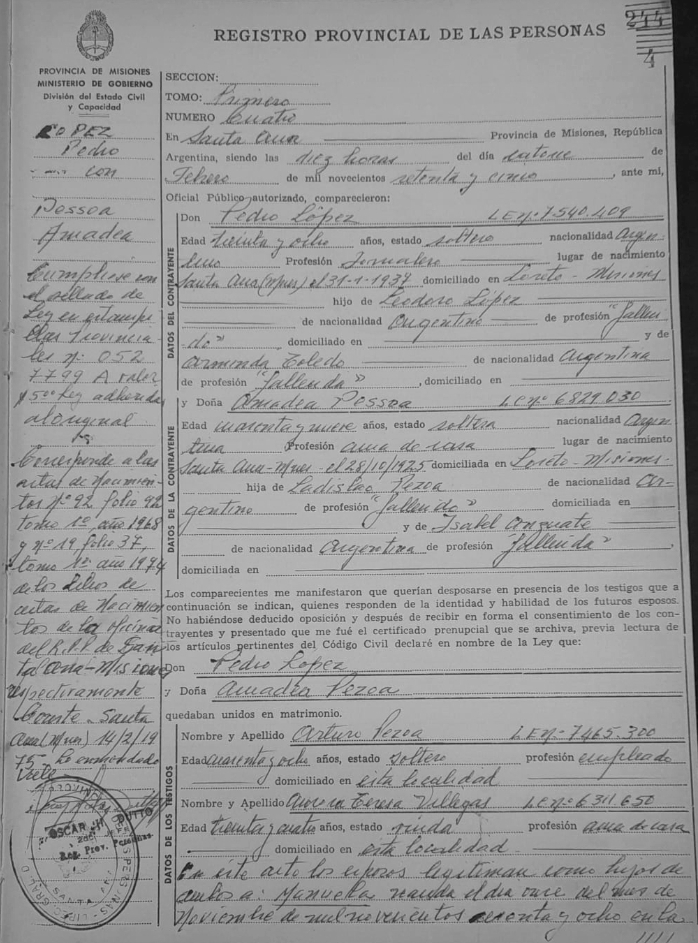 244
4
REGISTRO PROVINCIAL DE LAS PERSONAS
PROVINCIA DE MISIONES
MINISTERIO DE GOBIERNO
División del Estado Civil
y Capacidad
LOPEZ
Pedro
con
Pessoa
Amadea
Cumplióse con
el sellado de
Ley en estampi
llas Provincia-
les nº 052
7799 A valor
$500 Ley adherida
al original
Corresponde a las
actas de Nacimien-
tos Nº 92 folio 92
tomo 1º, año 1968
y nº 19, folio 37,
tomo 1º año 1974
de los Libros de
actas de Nacimien
tos de la oficina
del R.P.P. de San
ta Ana-Misiones
respectivamente
Conste. Santa
Ana (Mnes) 14/2/19
75- Lo enmendado
Vale
OSCAR H.
Reg. Prov. Personas
SECCION:
TOMO: Primero
NUMERO Cuatro
En Santa Ana Provincia de Misiones, República
Argentina, siendo las diez horas del día catorce de
Febrero de mil novecientos setenta y cinco, ante mi,
Oficial Público autorizado, comparecieron:
DATOS DEL CONTRAYENTE
Don Pedro López L.E.Nº 7.540.409
Edad treinta y ocho años, estado soltero nacionalidad Argen-
tino Profesión Jornalero lugar de nacimiento
Santa Ana (Mnes) el 31-1-1937 domiciliado en Loreto - Misiones
hijo de Teodoro López
de nacionalidad Argentino de profesión "falleci-
do" domiciliado en y de
Arminda Toledo de nacionalidad Argentina
de profesión "fallecida", domiciliado en
DATOS DE LA CONTRAYENTE
y Doña Amadea Pessoa L.C.nº 6829.030
Edad cuarenta y nueve años, estado soltera nacionalidad Argen
tina Profesión ama de casa lugar de nacimiento
Santa Ana-Mnes- el 28/10/1925 domiciliada en Loreto-Misiones-
hija de Ladislao Pezoa de nacionalidad Ar-
gentino de profesión "fallecido" domiciliada en
y de Isabel
de nacionalidad Argentina de profesión "fallecida",
domiciliada en
Los comparecientes me manifestaron que querían desposarse en presencia de los testigos que a
continuación se indican, quienes responden de la identidad y habilidad de los futuros esposos.
No habiéndose deducido oposición y después de recibir en forma el consentimiento de los con-
trayentes y presentado que me fué el certificado prenupcial que se archiva, previa lectura de
los artículos pertinentes del Código Civil declaré en nombre de la Ley que:
Don Pedro Lopez
y Doña Amadea Pezoa
quedaban unidos en matrimonio.
DATOS DE LOS TESTIGOS
Nombre y Apellido Arturo Pezoa L.E.nº 7465.300
Edad cuarenta y ocho años, estado soltero profesión empleado
domiciliado en esta localidad
Nombre y Apellido Aurora Teresa Villegas L.C.nº 6.311.650
Edad treinta y cuatro años, estado viuda profesión ama de casa
domiciliado en esta localidad
En este acto los esposos legitiman como hijos de
ambos a: Manuela nacida el día once del mes de
Noviembre de mil novecientos sesenta y ocho en la